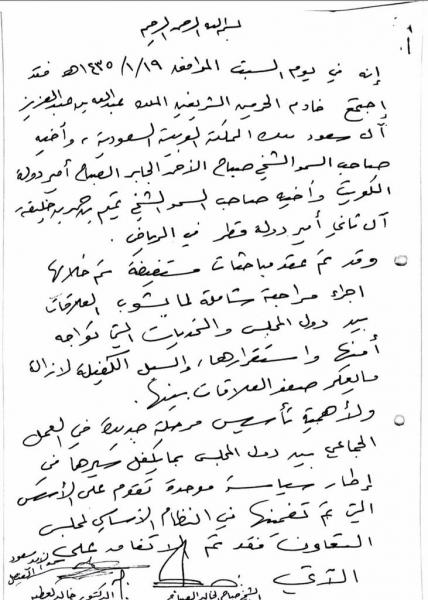 بسم الله الرحمن الرحيم
إنه في يوم السبت الموافق ١٤٣٥/١/١٩هـ فقد
اجتمع خادم الحرمين الشريفين الملك عبدالله بن عبدالعزيز
آل سعود ملك المملكة العربية السعودية، وأخيه
صاحب السمو الشيخ صباح الأحمد الجابر الصباح أمير دولة
الكويت وأخيه صاحب السمو الشيخ تميم بن حمد بن خليفة
آل ثاني أمير دولة قطر في الرياض.
وقد تم عقد مباحثات مستفيضة تم خلالها
اجراء مراجعة شاملة لما يشوب العلاقات
بين دول المجلس والتحديات التي تواجه
أمنها واستقرارها، والسبل الكفيلة لازالة
مايعكر صفو العلاقات بينها.
ولأهمية تأسيس مرحلة جديدة في العمل
الجماعي بين دول المجلس بما يكفل سيرها في
إطار سياسة موحدة تقوم على الأسس
التي تم تضمينها في النظام الاساسي لمجلس
التعاون فقد تم الاتفاق على
الآتي
سعود الفيصل
الشيخ صباح الخالد الصباح
الدكتور خالد العطية